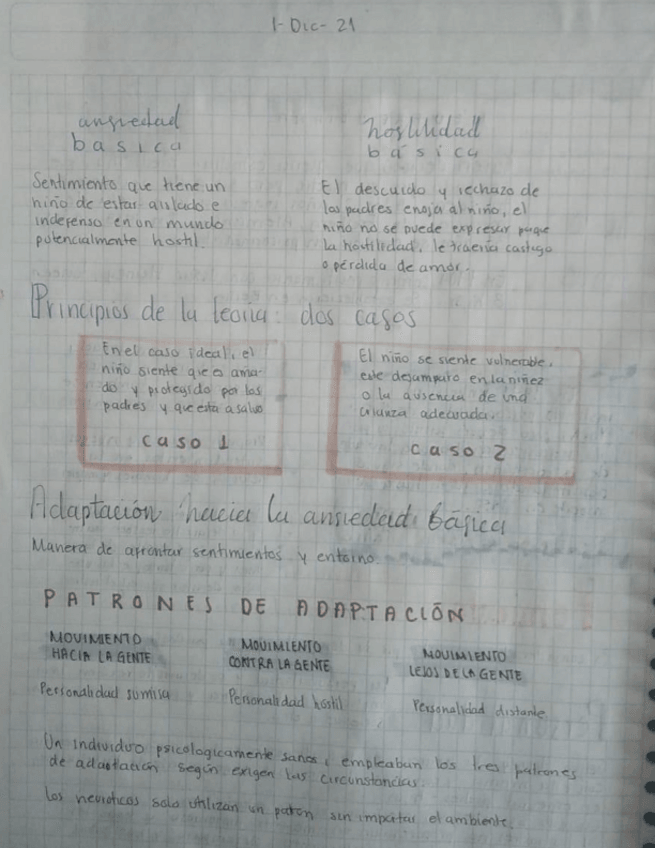 1-Dic-21
ansiedad
basica
Sentimiento que tiene un
niño de estar aislado e
indefenso en un mundo
potencialmente hostil.
hostilidad
básica
El descuido y rechazo de
los padres enoja al niño, el
niño no se puede expresar porque
la hostilidad, le traería castigo
o pérdida de amor.
Principios de la teoria: dos casos
En el caso ideal, el
niño siente que es ama-
do y protegido por los
padres y que esta a salvo
caso 1
El niño se siente vulnerable,
este desamparo en la niñez
o la ausencia de una
crianza adecuada.
caso 2
Adaptación hacia la ansiedad básica
Manera de afrontar sentimientos y entorno.
PATRONES DE ADAPTACIÓN
MOVIMIENTO
HACIA LA GENTE
Personalidad sumisa
MOVIMIENTO
CONTRA LA GENTE
Personalidad hostil
MOVIMIENTO
LEJOS DE LA GENTE
Personalidad distante
Un individuo psicologicamente sano, empleaban los tres patrones
de adaptación según exigen las circunstancias.
los neuroticos solo utilizan un patron sin importar el ambiente.